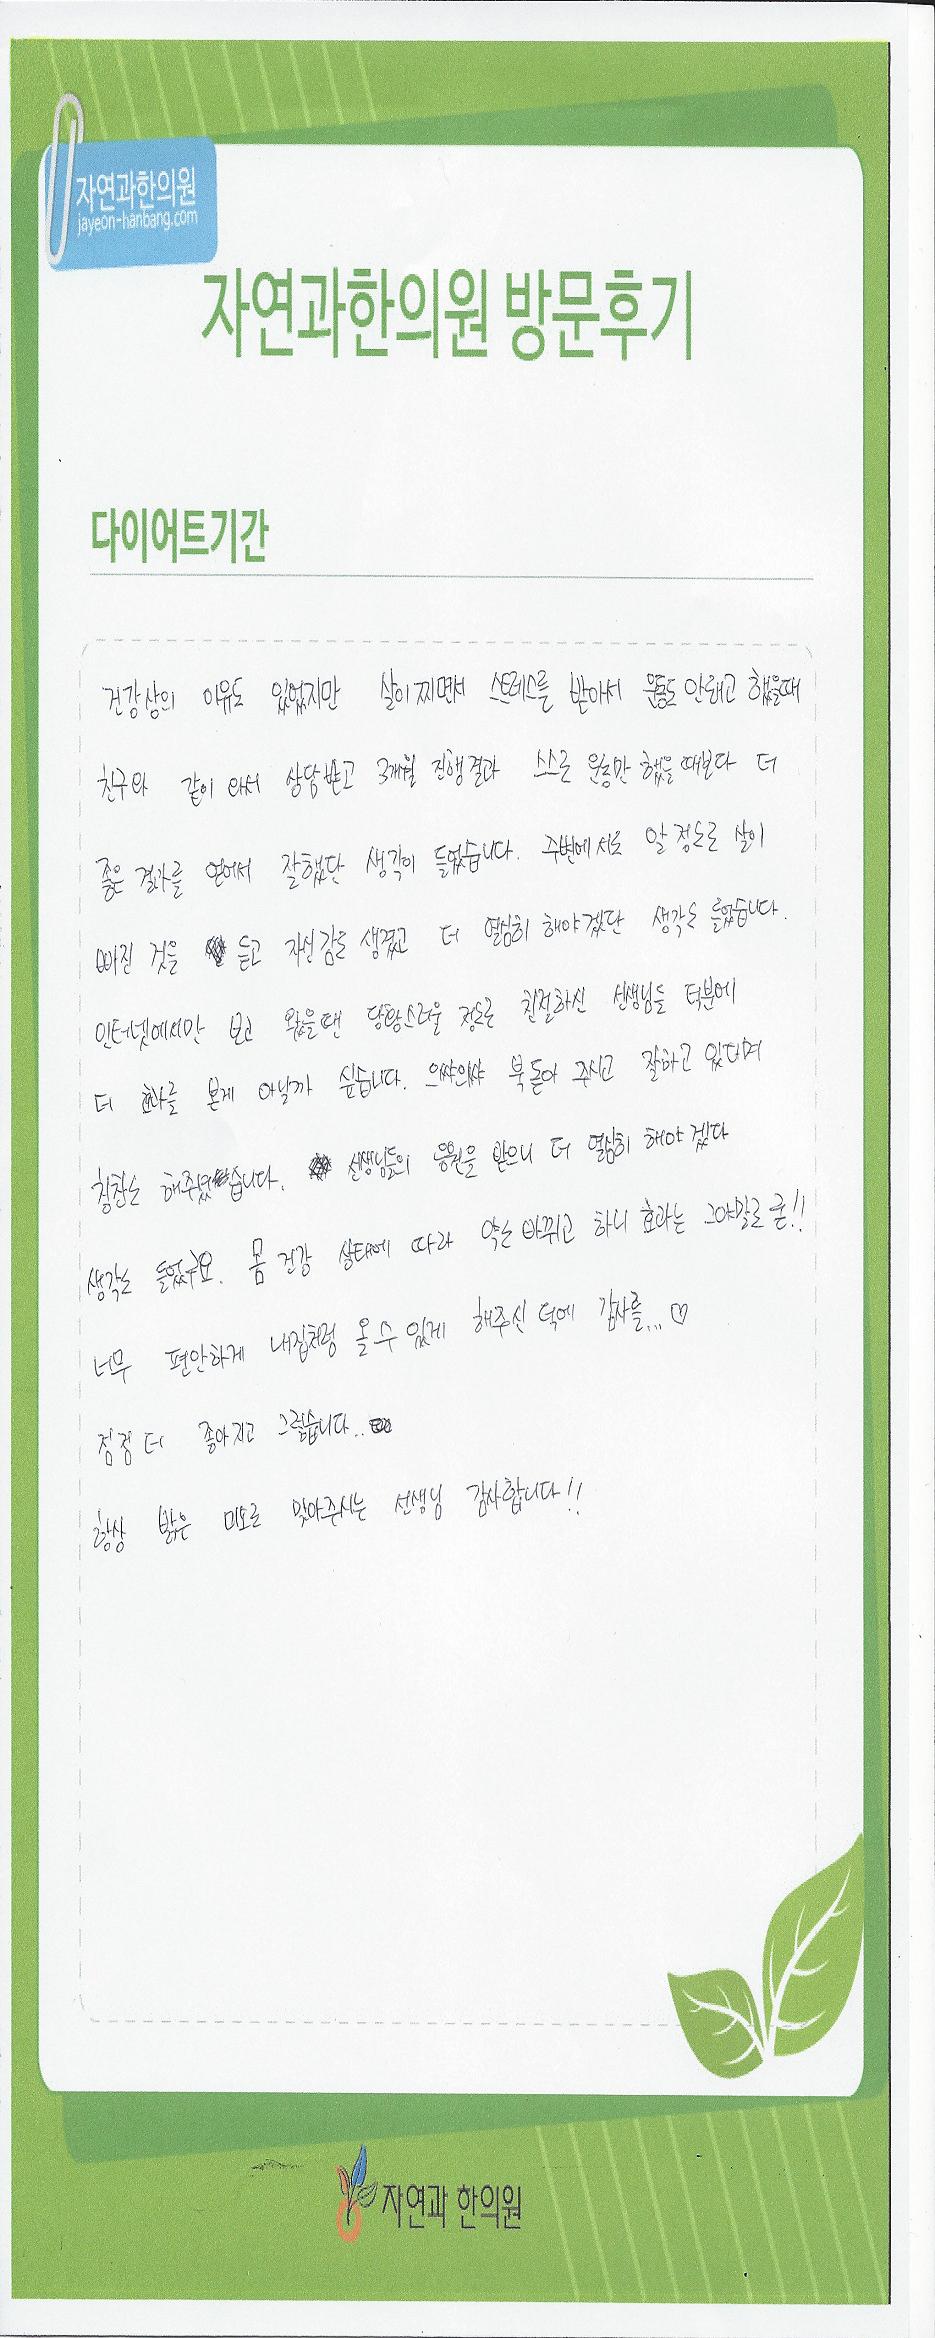 자연과한의원
jayeon-hanbang.com
자연과한의원 방문후기
다이어트기간
건강상의 이유도 있었지만 살이 찌면서 스트레스를 받아서 운동도 안하고 했을때
친구와 같이 와서 상담받고 3개월 진행결과 스스로 운동만 했을때보다 더
좋은 결과를 얻어서 잘했단 생각이 들었습니다. 주변에서도 알 정도로 살이
빠진 것을 듣고 자신감을 생겼고 더 열심히 해야겠단 생각도 들었습니다.
인터넷에서만 보고 왔을땐 당황스러울 정도로 친절하신 선생님들 덕분에
더 효과를 본게 아닐까 싶습니다. 의쌰의쌰 북돋아 주시고 잘하고 있다며
칭찬도 해주셨습니다. 선생님들의 응원을 받으니 더 열심히 해야겠다
생각도 들었구요. 몸 건강 상태에 따라 약도 바뀌고 하니 효과는 그야말로 굳!!
너무 편안하게 내집처럼 올 수 있게 해주신 덕에 감사를... ♡
점점 더 좋아지고 그렇습니다..
항상 밝은 미소로 맞아주시는 선생님 감사합니다!!
자연과 한의원